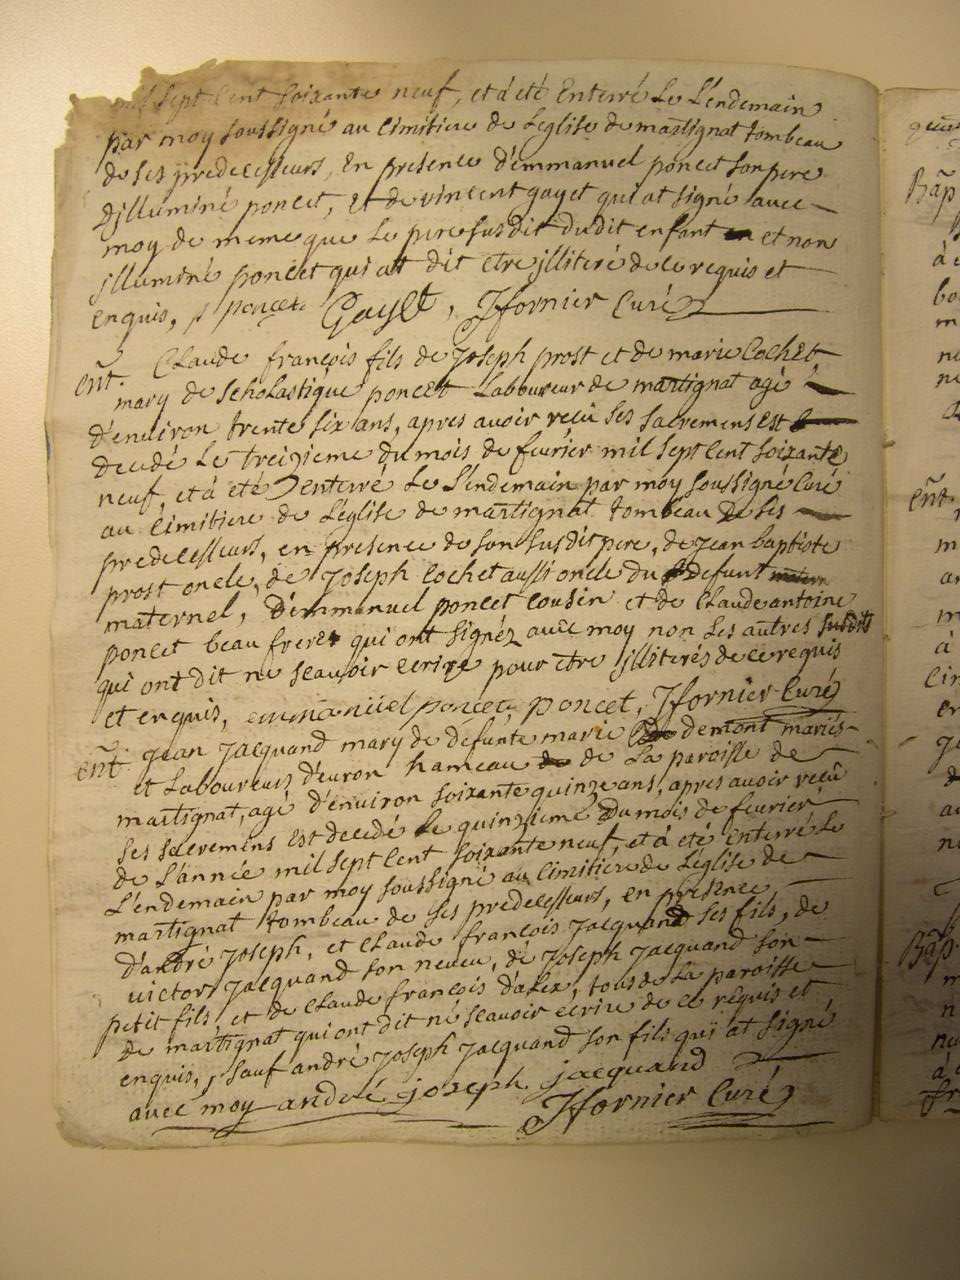 mil sept cent soixante neuf, et à été Enterré Le L'endemain
par moy soussigné au cimitiere de Leglise de martignat tombeau
de ses predecesseurs, En presence d'emmanuel poncet son pere
d'illuminé poncet, Et de vincent gayet qui at signé avec
moy de meme que Le pere susdit dudit enfant et non
illuminé poncet qui at dit etre jlliteré de ce requis et
enquis, poncet Gayet, Jfornier Curé
Ent. Claude françois fils de Joseph prost et de marie Cochet
mary de Scholastique poncet Laboureur de martignat agé
d'environ trente six ans, apres avoir reçû ses sacremens est
decedé Le treizieme du mois de fevrier mil sept cent soixante
neuf, et à été enterré Le L'endemain par moy soussigné Curé
au Cimitiere de Leglise de martignat tombeau de ses
predecesseurs, en presence de son susdit pere, de jean baptiste
prost oncle, de Joseph Cochet aussi oncle du defunt
maternel, d'Emmanuel poncet cousin et de Claude antoine
poncet beau frere qui ont signéz avec moy non Les autres susdits
qui ont dit ne sçavoir ecrire pour être jlliterés de ce requis
et enquis, emmanuiel poncet, poncet, Jfornier Curé
Ent. jean jacquand mary de defunte marie demont mariés
et Laboureurs d'evron hameau de La paroisse de
martignat, agé d'environ soixante quinze ans, apres avoir reçû
ses sacremens est decedé Le quinzieme du mois de fevrier
de L'année mil sept cent soixante neuf, et à été enterré Le
L'endemain par moy soussigné au cimitiere de Léglise de
martignat tombeau de ses predecesseurs, en presence
d'andré joseph, et claude françois jacquand ses fils, de
victor jacquand son neveu, de joseph jacquand son
petit fils et de claude françois d'alex, tous de La paroisse
de martignat qui ont dit né sçavoir écrire de ce requis et
enquis, sauf andré joseph jacquand son fils qui at signé
avec moy andré joseph jacquand
Jfornier Curé